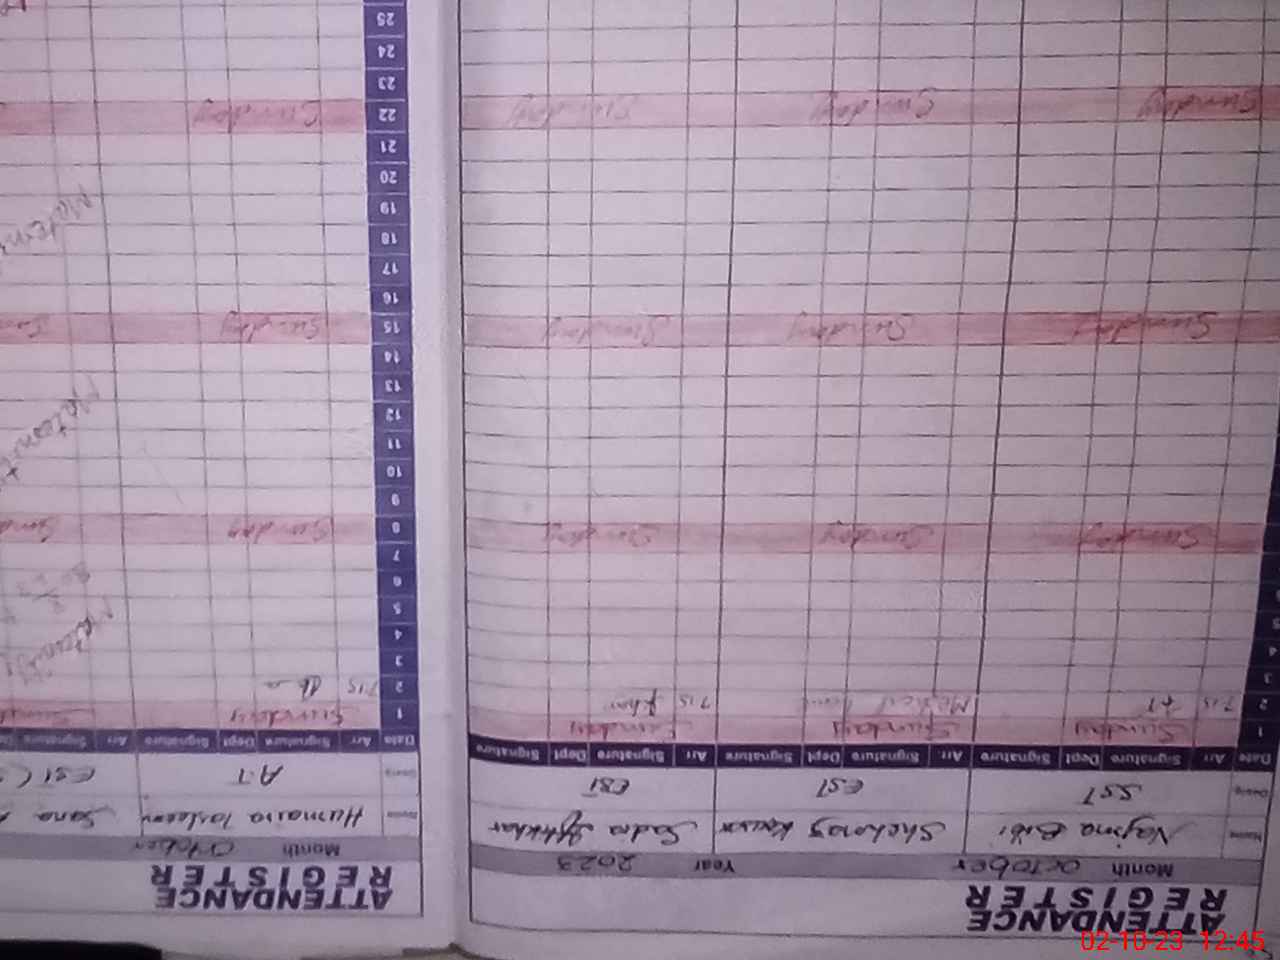 ATTENDANCE
REGISTER
Month October Year 2023
Name Najma Bibi Shehnaz Kausar Sadia Iftikhar
Desig SST EST EST
Date Arr Signature Dept Signature Arr Signature Dept Signature Arr Signature Dept Signature
1 Sunday Sunday Sunday
2 7:15 Medical 7:15
3
4
5
Sunday Sunday Sunday
Sunday Sunday Sunday
Sunday Sunday Sunday
ATTENDANCE
REGISTER
Month October
Name Humaira Tasleem Sana
Desig A.T EST
Date Arr Signature Dept Signature Arr Signature
1 Sunday Sunday
2 7:15
3
4 Maternity
5
6
7
8 Sunday Sund
9
10
11 Maternity
12
13
14
15 Sunday
16
17
18
19
20
21
22 Sunday
23
24
25
02-10-23 12:45